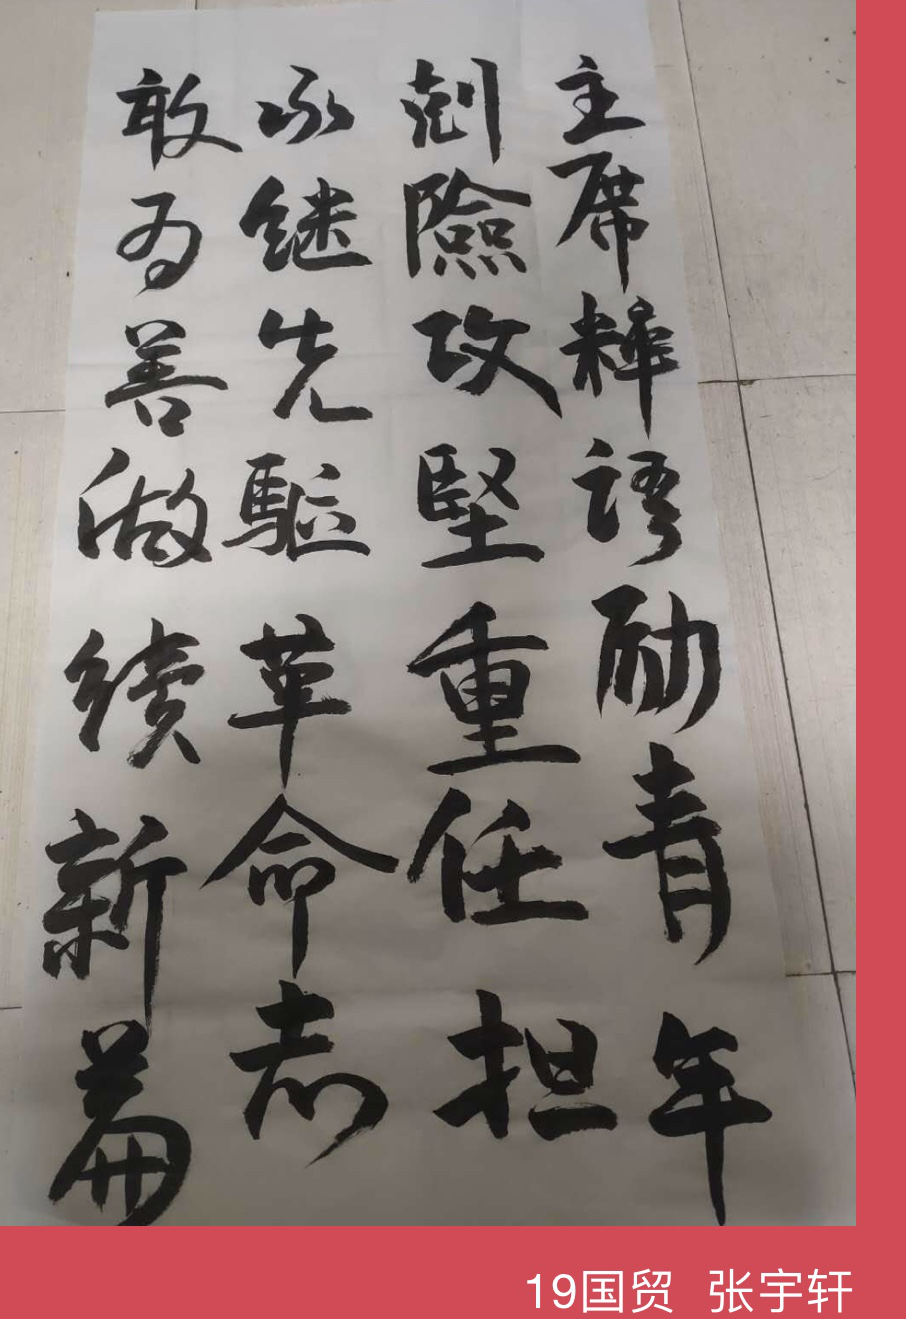 主席粹语励青年
剋險攻堅重任担
承继先駈革命志
敢为善做續新篇
19国贸 张宇轩